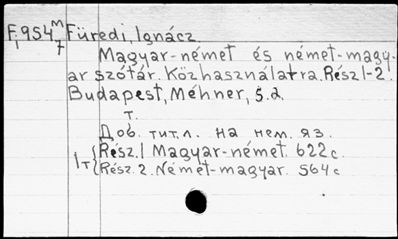 F 954 M/7 Füredi, Ignácz.
Magyar-német és német-magy-
ar szótár. Közhasználatra. Rész 1-2.
Budapest, Méhner, s.a.
т.
Доб. тит. л. на нем. яз.
1т { Rész. 1 Magyar-német. 622 с.
Rész. 2. Német-magyar. 564 с